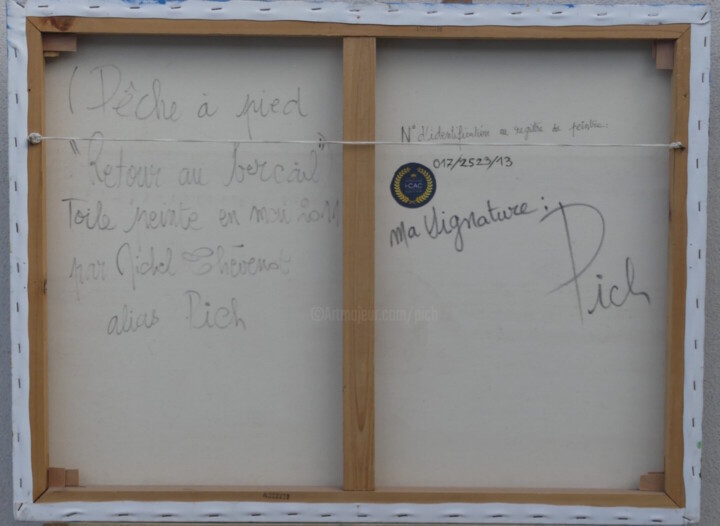 (Pêche à pied
"Retour au bercail"
Toile peinte en mai 2011
par Michel Thévenot
alias Pich
N° d'identification au registre de peintre:
017/2523/13
ICAC
Ma Signature:
Pich
©Artmajeur.com/pich